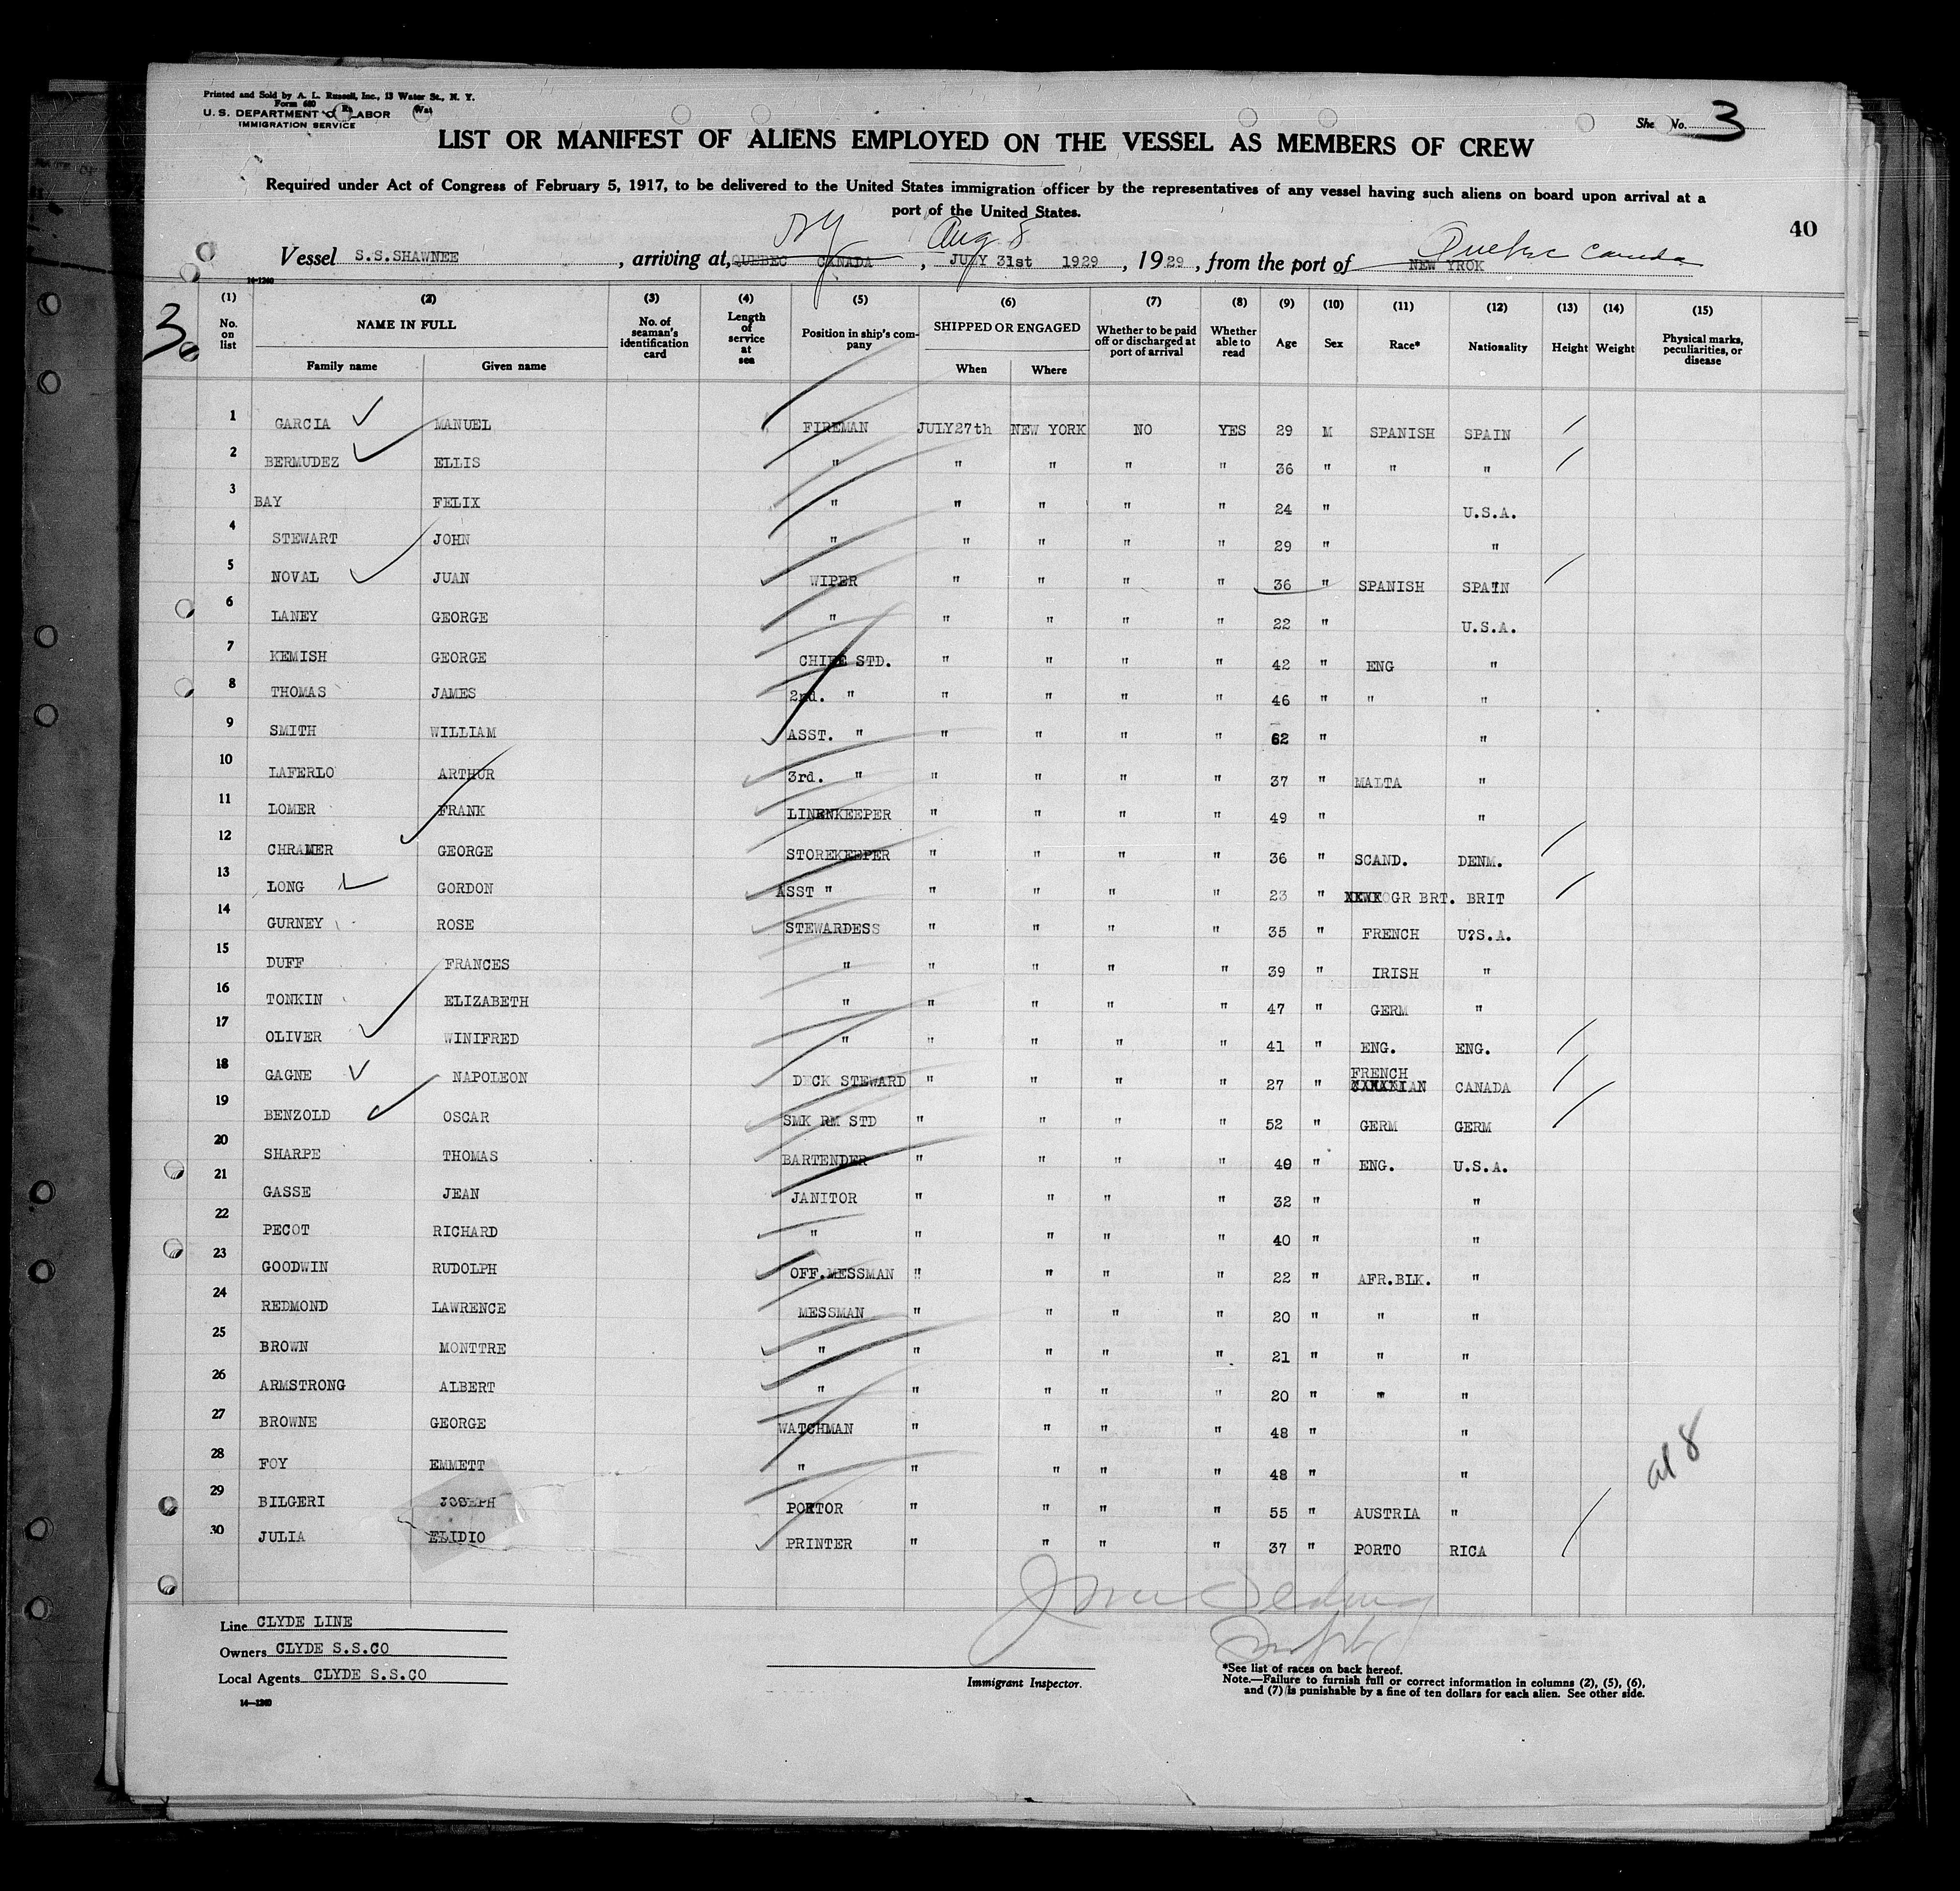 Printed and Sold by A. L. Russell, Inc., 13 Water St., N. Y.
Form 680
U. S. DEPARTMENT OF LABOR
IMMIGRATION SERVICE
She No. 3
LIST OR MANIFEST OF ALIENS EMPLOYED ON THE VESSEL AS MEMBERS OF CREW
Required under Act of Congress of February 5, 1917, to be delivered to the United States immigration officer by the representatives of any vessel having such aliens on board upon arrival at a
port of the United States.
40
NY Aug 8 Quebec Canada
Vessel S.S.SHAWNEE, arriving at, QUEBEC CANADA, JULY 31st 1929, 1929, from the port of NEW YROK
14-1240
3
(1) (2) (3) (4) (5) (6) (7) (8) (9) (10) (11) (12) (13) (14) (15)
No. on list NAME IN FULL No. of seaman's identification card Length of service at sea Position in ship's company SHIPPED OR ENGAGED Whether to be paid off or discharged at port of arrival Whether able to read Age Sex Race* Nationality Height Weight Physical marks, peculiarities, or disease
Family name Given name When Where
1 GARCIA MANUEL FIREMAN JULY27th NEW YORK NO YES 29 M SPANISH SPAIN
2 BERMUDEZ ELLIS " " " " " 36 " " "
3 BAY FELIX " " " " " 24 " U.S.A.
4 STEWART JOHN " " " " " 29 " "
5 NOVAL JUAN WIPER " " " " 36 " SPANISH SPAIN
6 LANEY GEORGE " " " " " 22 " U.S.A.
7 KEMISH GEORGE CHIEF STD. " " " " 42 " ENG "
8 THOMAS JAMES 2nd. " " " " " 46 " " "
9 SMITH WILLIAM ASST. " " " " " 62 " "
10 LAFERLO ARTHUR 3rd. " " " " " 37 " MALTA "
11 LOMER FRANK LINENKEEPER " " " " 49 " "
12 CHRAMER GEORGE STOREKEEPER " " " " 36 " SCAND. DENM.
13 LONG GORDON ASST " " " " " 23 " OGR BRT. BRIT
14 GURNEY ROSE STEWARDESS " " " " 35 " FRENCH U?S.A.
15 DUFF FRANCES " " " " " 39 " IRISH "
16 TONKIN ELIZABETH " " " " " 47 " GERM "
17 OLIVER WINIFRED " " " " " 41 " ENG. ENG.
18 GAGNE NAPOLEON DECK STEWARD " " " " 27 " FRENCH CANADA
19 BENZOLD OSCAR SMK RM STD " " " " 52 " GERM GERM
20 SHARPE THOMAS BARTENDER " " " " 40 " ENG. U.S.A.
21 GASSE JEAN JANITOR " " " " 32 " "
22 PECOT RICHARD " " " " " 40 " "
23 GOODWIN RUDOLPH OFF.MESSMAN " " " " 22 " AFR.BLK. "
24 REDMOND LAWRENCE MESSMAN " " " " 20 " " "
25 BROWN MONTTRE " " " " " 21 " " "
26 ARMSTRONG ALBERT " " " " " 20 " " "
27 BROWNE GEORGE WATCHMAN " " " " 48 " "
28 FOY EMMETT " " " " " 48 " "
29 BILGERI JOSEPH PORTOR " " " " 55 " AUSTRIA "
30 JULIA ELIDIO PRINTER " " " " 37 " PORTO RICA
Line CLYDE LINE
Owners CLYDE S.S.CO
Local Agents CLYDE S.S.CO
14-1240
Immigrant Inspector.
*See list of races on back hereof.
Note.—Failure to furnish full or correct information in columns (2), (5), (6),
and (7) is punishable by a fine of ten dollars for each alien. See other side.